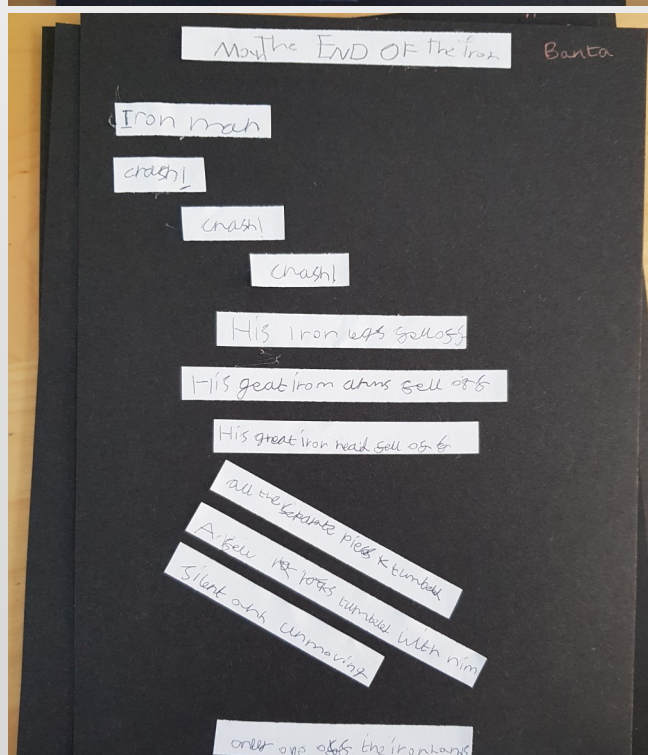 The END OF the Iron Man
Banta
Iron man
crash!
crash!
crash!
His iron legs fell off
His geat irom arms fell off
His great iron head fell off
all the separate pieces tumbled
A few rocks tumbled with him
Silent and unmoving
only one off the iron hams